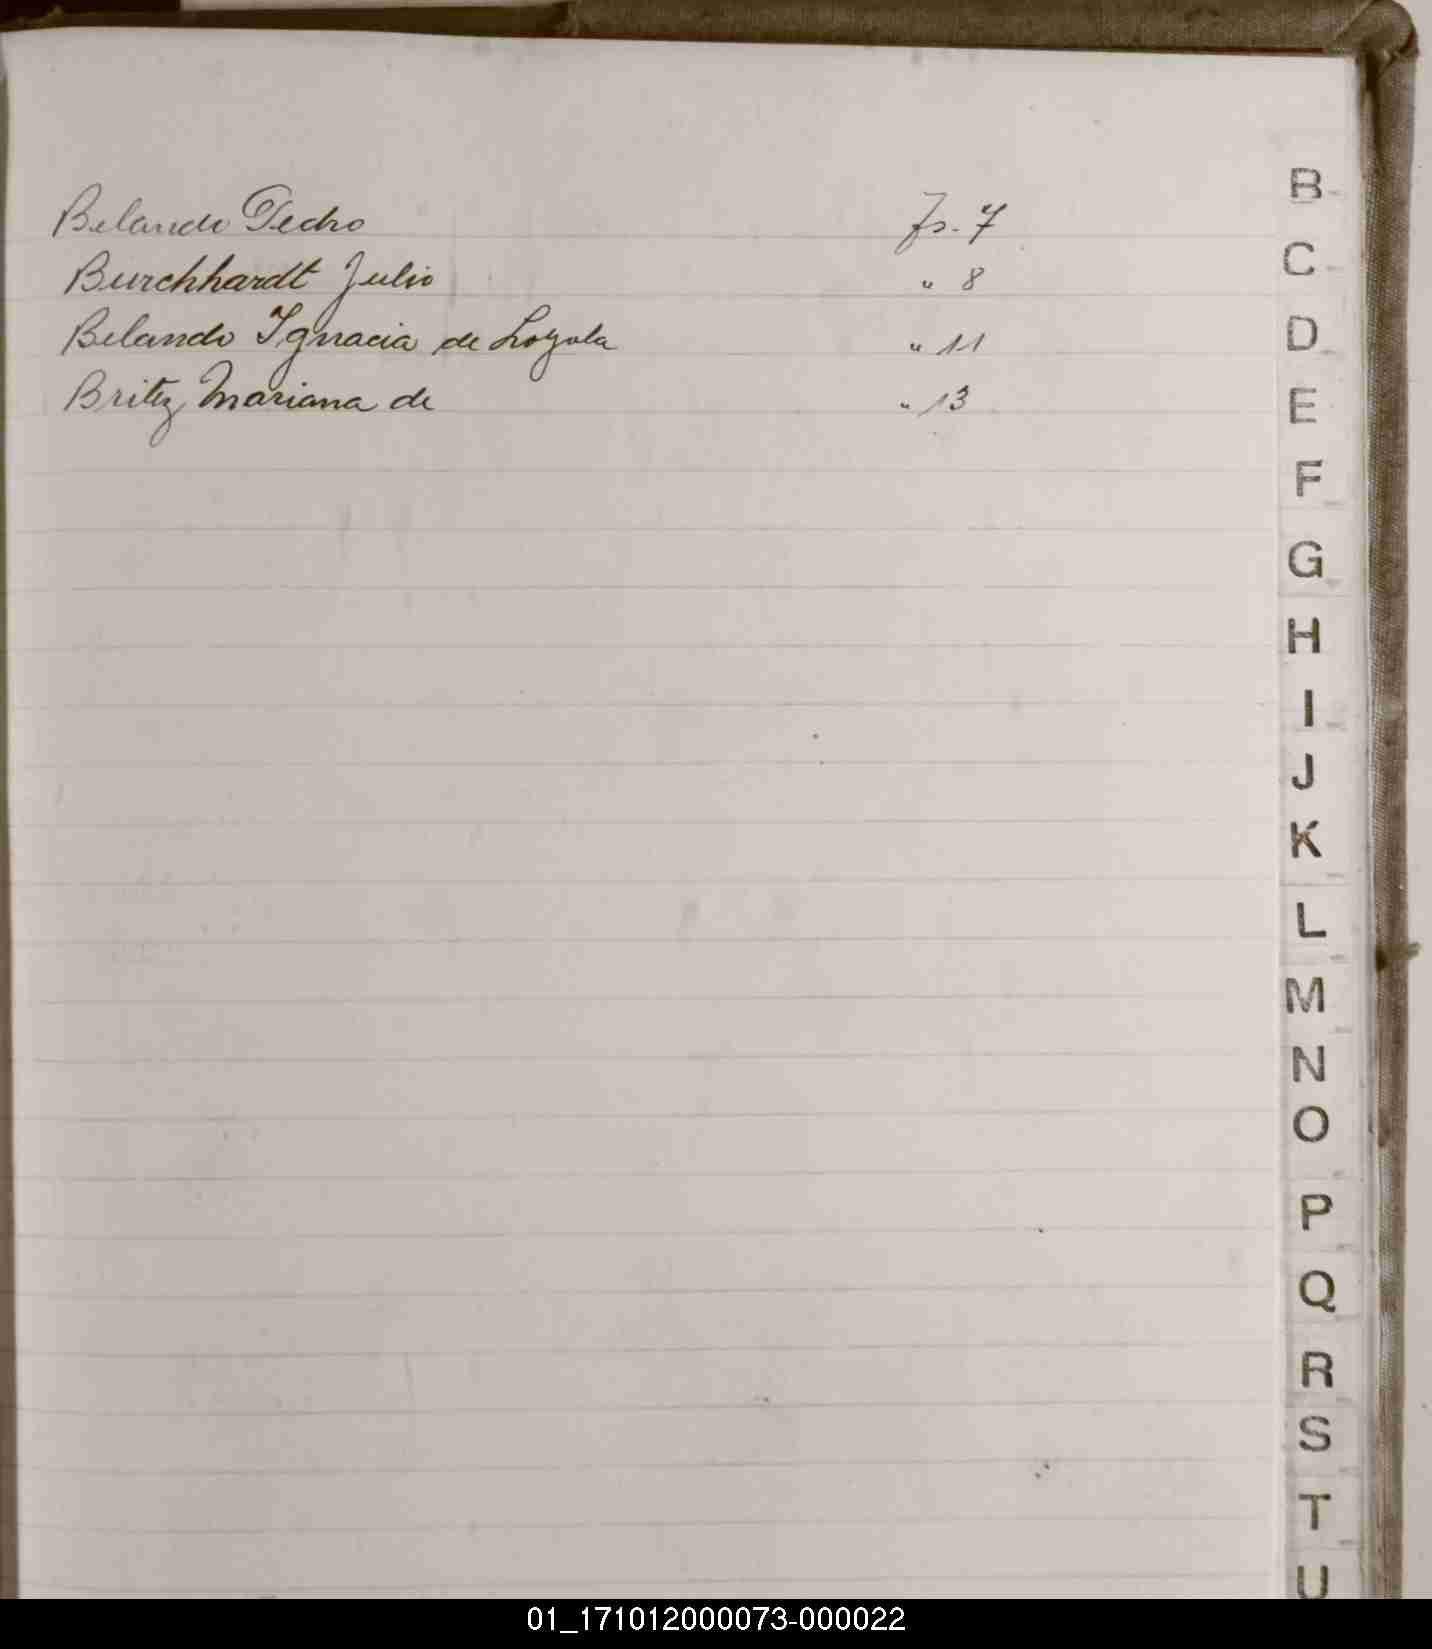 Belando Pedro fs. 7
Burchhardt Julio " 8
Belando Ignacia de Loyola " 11
Britez Mariana de " 13
B
C
D
E
F
G
H
I
J
K
L
M
N
O
P
Q
R
S
T
U
01_171012000073-000022